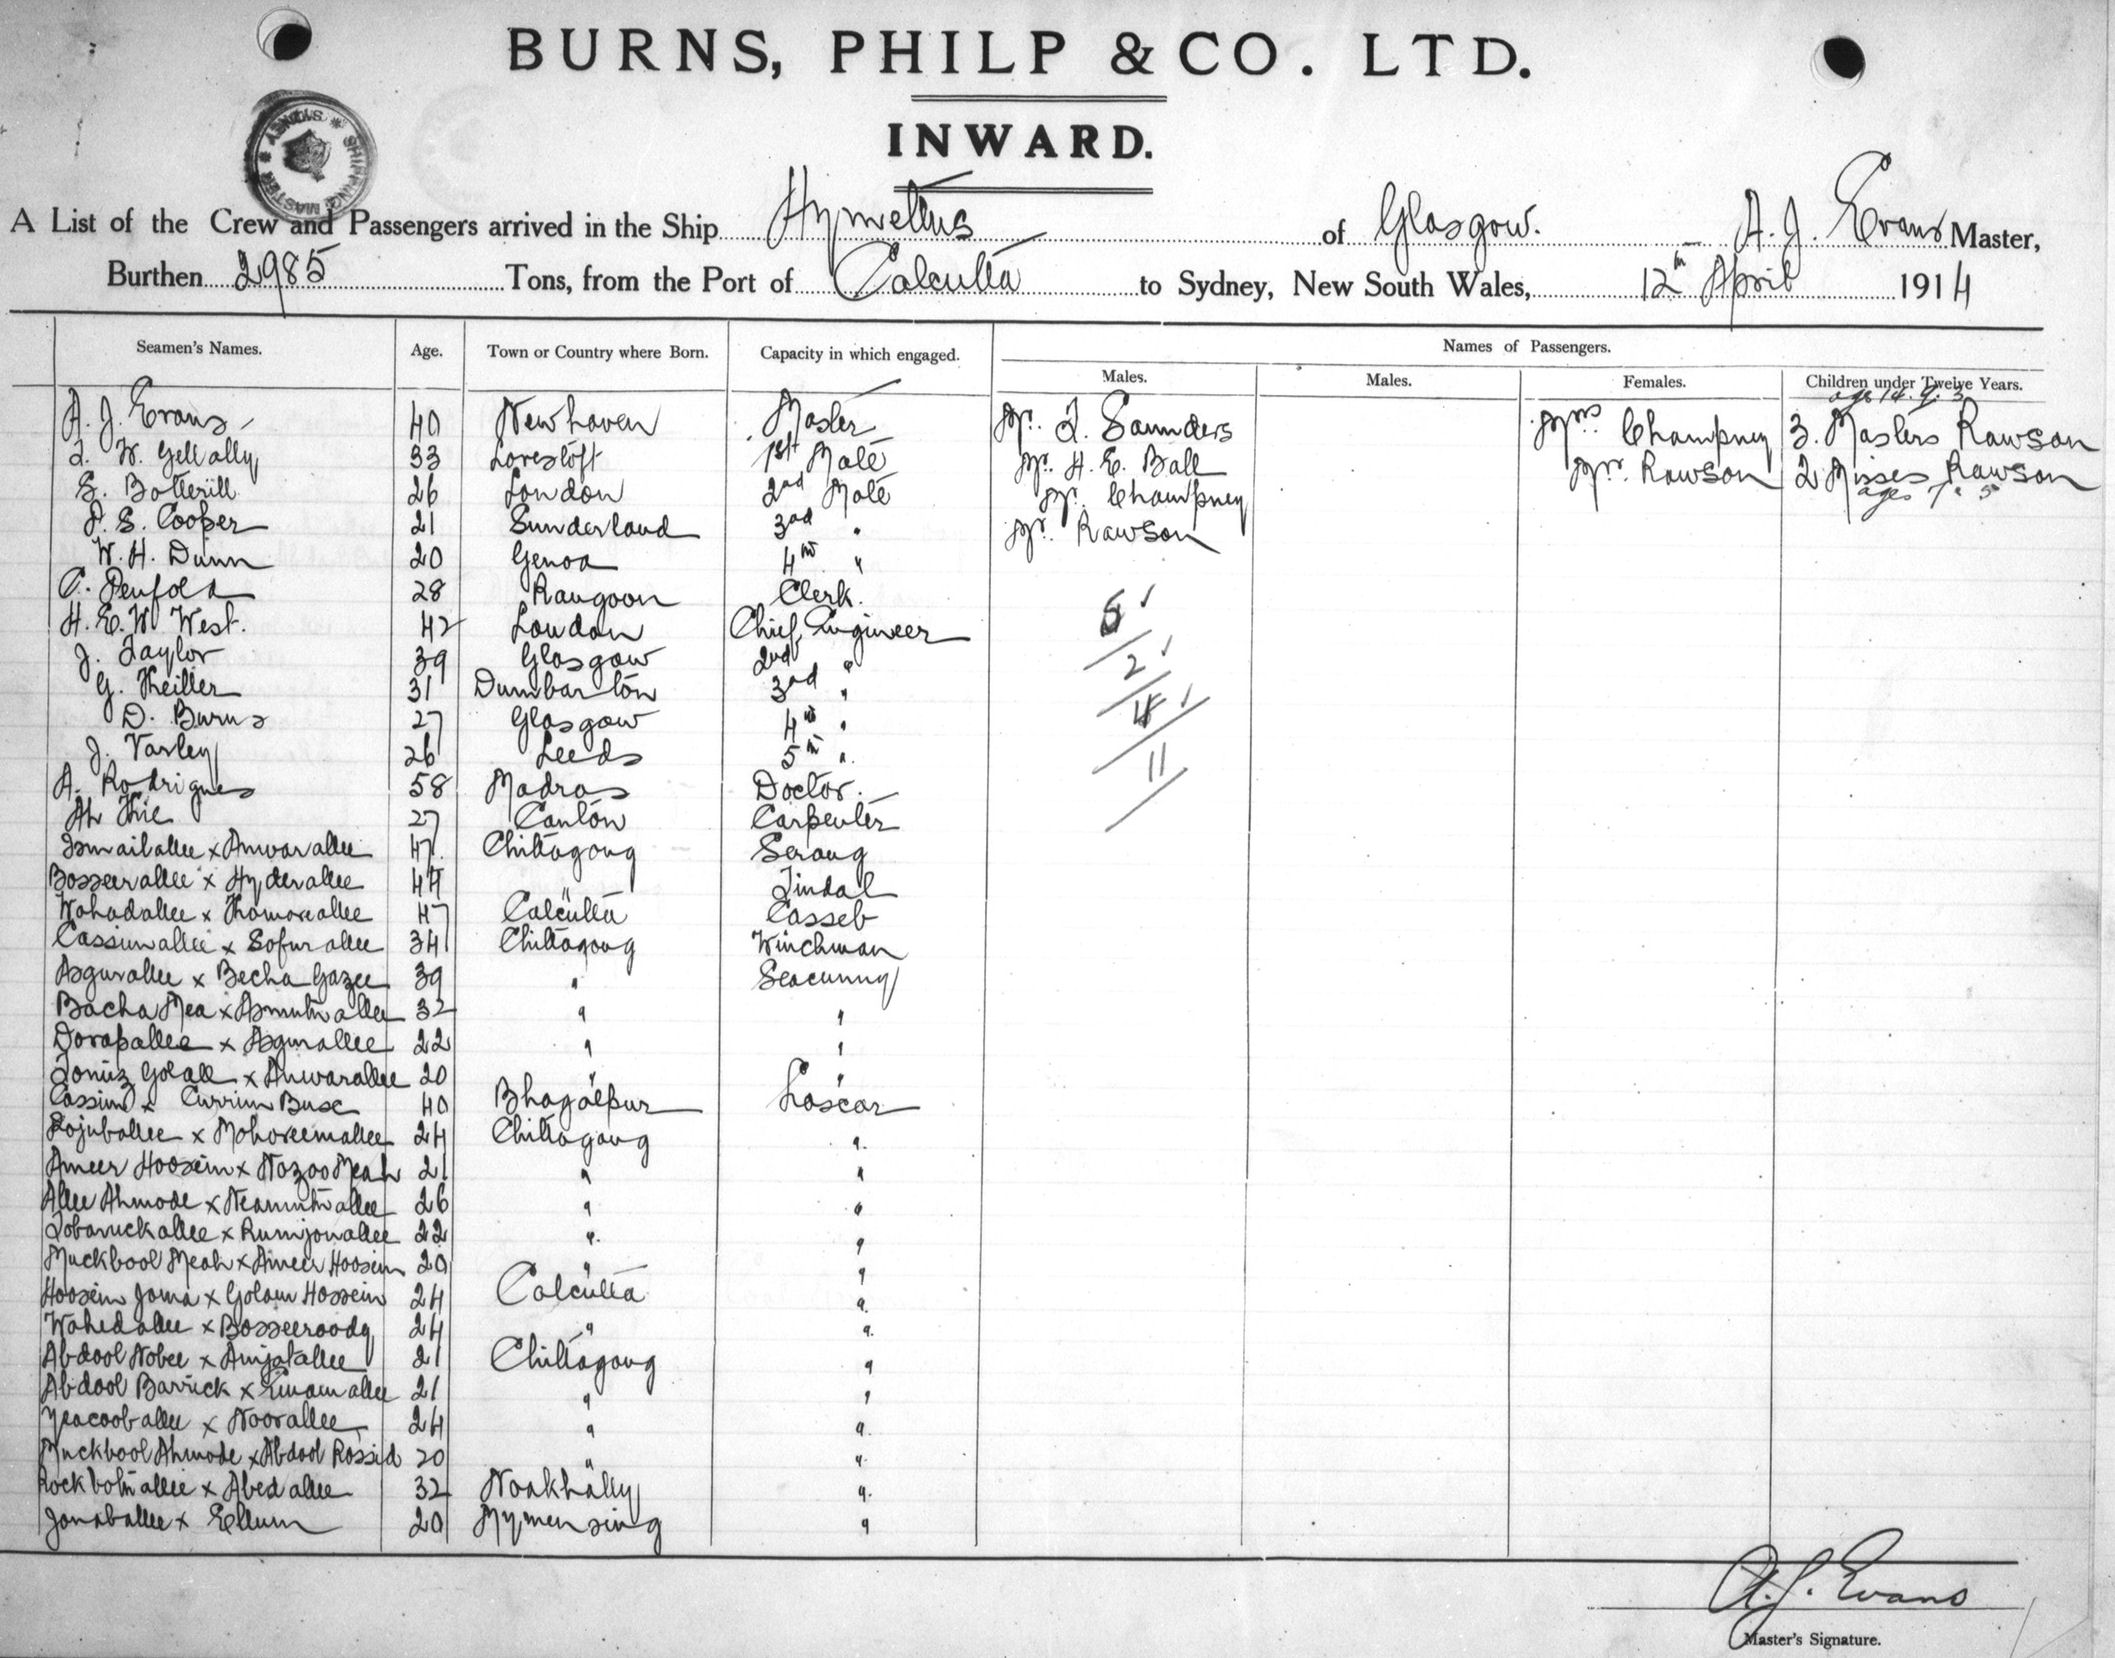 BURNS, PHILP & CO. LTD.
INWARD.
SHIPPING MASTER * SYDNEY *
A List of the Crew and Passengers arrived in the Ship Hymettus of Glasgow. A. J. Evans Master,
Burthen 2985 Tons, from the Port of Calcutta to Sydney, New South Wales, 12th April 1914
Seamen's Names. Age. Town or Country where Born. Capacity in which engaged. Names of Passengers.
Males. Males. Females. Children under Twelve Years.
ages 14. 9. 3
A. J. Evans 40 Newhaven Master Mr. T. Saunders Mrs Champney 3. Masters Rawson
T. W. Gellatly 33 Lowestoft 1st Mate Mr. H. E. Ball Mrs. Rawson 2 Misses Rawson
ages 7 & 5
S. Botterill 26 London 2nd Mate Mr. Champney
P. S. Cooper 21 Sunderland 3rd " Mr. Rawson
W. H. Dunn 20 Genoa 4th "
C. Penfold 28 Rangoon Clerk.
H. E. W. West. 42 London Chief Engineer
J. Taylor 39 Glasgow 2nd " 2
G. Keiller 31 Dumbarton 3rd "
D. Burns 27 Glasgow 4th "
J. Varley 26 Leeds 5th " 11
A. Rodrigues 58 Madras Doctor.
Ah Kie 27 Canton Carpenter
Ismailallee x Anwarallee 47. Chittagong Serang
Bosseerallee x Hyderallee 44 " Tindal
Wahadallee x Thamoreallee 47 Calcutta Casseb
Cassimallee x Sofurallee 34 Chittagong Winchman
Asgurallee x Becha Gazee 39 " Seacunny
Bacha Mea x 32 " "
Dorapallee x Asgurallee 22 " "
x Anwarallee 20 " "
Cassim x Currim Buse 40 Bhagalpur Lascar
x Mohoreemallee 24 Chittagong "
Ameer Hoosein x Nozoo Meah 21 " "
Allee Ahmode x 26 " "
Tobaruckallee x Rumjonallee 22 " "
Muckbool Meah x Ameer Hoosein 20 " "
Hoosein Joma x Golam Hossein 24 Calcutta "
Wahedallee x Bosseeroody 24 " "
Abdool Nobee x Amjatallee 21 Chittagong "
Abdool Barrick x Emamallee 21 " "
Yeacooballee x Noorallee 24 " "
Muckbool Ahmode x Abdool Rossid 20 " "
x Abedallee 32 Noakhally "
Jonaballee x Ellum 20 Mymensing "
A. J. Evans
Master's Signature.